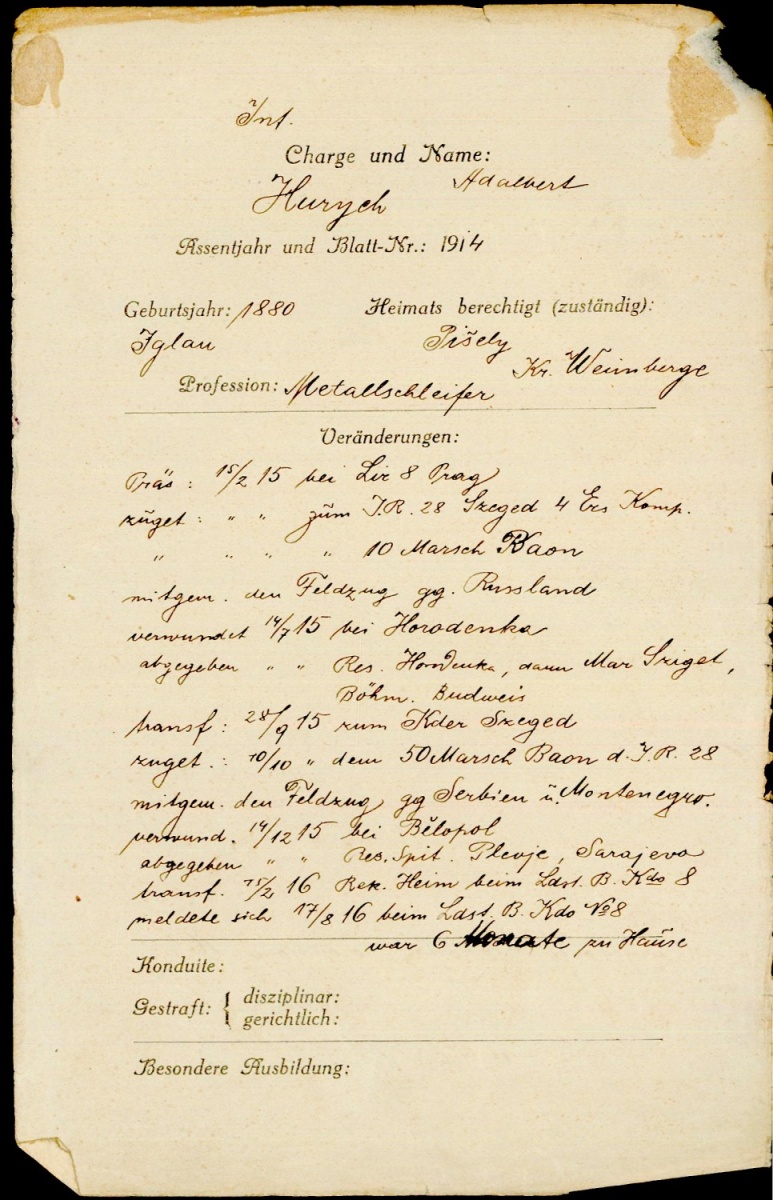 Inf.
Charge und Name:
Hurych Adalbert
Assentjahr und Blatt-Nr.: 1914
Geburtsjahr: 1880 Heimats berechtigt (zuständig):
Iglau Pišely
Kr. Weinberge
Profession: Metallschleifer
Veränderungen:
Präs : 15/2 15 bei Lir 8 Prag
zuget : " " zum I.R. 28 Szeged 4 Ers Komp.
" " " " 10 Marsch Baon
mitgem. den Feldzug gg. Russland
verwundet 14/7 15 bei Horodenka
abgegeben " " Res. Horodenka, dann Mar Sziget,
Böhm. Budweis
transf : 28/9 15 zum Kder Szeged
zuget. : 10/10 " dem 50 Marsch Baon d. I.R. 28
mitgem. den Feldzug gg Serbien u. Montenegro.
verwund. 14/12 15 bei Bělopol
abgegeben " " Res. Spit. Plevje, Sarajevo
transf. 15/2 16 Rek. Heim beim Ldst. B. Kdo 8
meldete sich 17/8 16 beim Ldst. B. Kdo No 8
war 6 Monate zu Hause
Konduite:
Gestraft: { disziplinar:
gerichtlich:
Besondere Ausbildung: